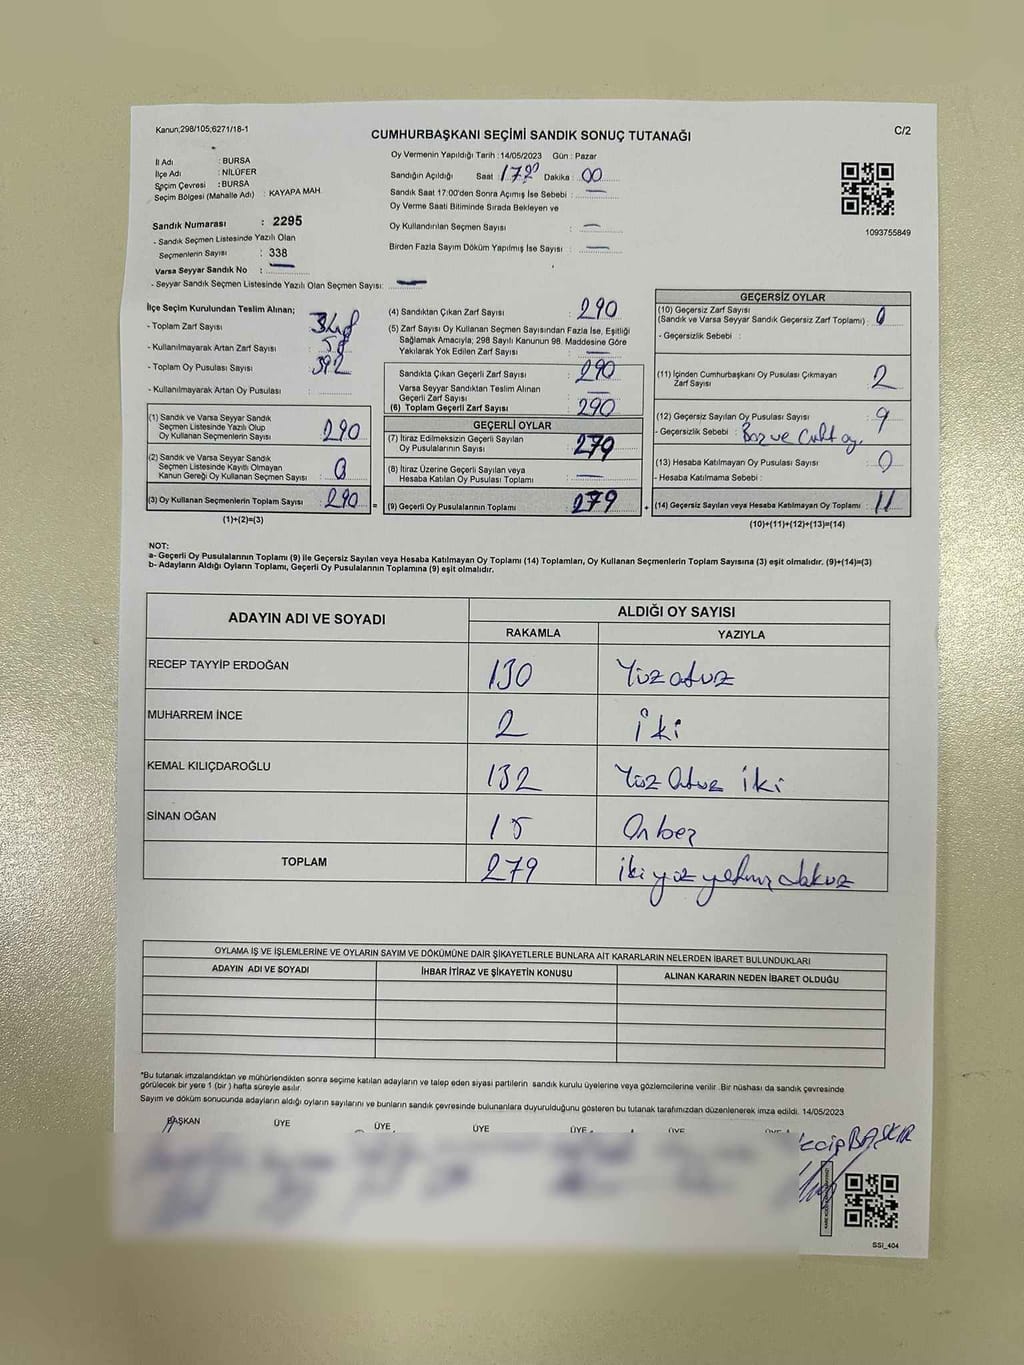 Kanun;298/105;6271/18-1
CUMHURBAŞKANI SEÇİMİ SANDIK SONUÇ TUTANAĞI
C/2
İl Adı : BURSA
İlçe Adı : NİLÜFER
Seçim Çevresi : BURSA
Seçim Bölgesi (Mahalle Adı) : KAYAPA MAH.
Sandık Numarası : 2295
- Sandık Seçmen Listesinde Yazılı Olan
Seçmenlerin Sayısı : 338
Varsa Seyyar Sandık No : —
- Seyyar Sandık Seçmen Listesinde Yazılı Olan Seçmen Sayısı: —
Oy Vermenin Yapıldığı Tarih : 14/05/2023 Gün : Pazar
Sandığın Açıldığı Saat Dakika : 00
Sandık Saat 17:00'den Sonra Açımış İse Sebebi : —
Oy Verme Saati Bitiminde Sırada Bekleyen ve
Oy Kullandırılan Seçmen Sayısı : —
Birden Fazla Sayım Döküm Yapılmış İse Sayısı : —
1093755849
İlçe Seçim Kurulundan Teslim Alınan;
- Toplam Zarf Sayısı
- Kullanılmayarak Artan Zarf Sayısı : 58
- Toplam Oy Pusulası Sayısı : 392
- Kullanılmayarak Artan Oy Pusulası :
(1) Sandık ve Varsa Seyyar Sandık
Seçmen Listesinde Yazılı Olup
Oy Kullanan Seçmenlerin Sayısı : 290
(2) Sandık ve Varsa Seyyar Sandık
Seçmen Listesinde Kayıtlı Olmayan
Kanun Gereği Oy Kullanan Seçmen Sayısı : 0
(3) Oy Kullanan Seçmenlerin Toplam Sayısı : 290 =
(1)+(2)=(3)
(4) Sandıktan Çıkan Zarf Sayısı : 290
(5) Zarf Sayısı Oy Kullanan Seçmen Sayısından Fazla İse, Eşitliği
Sağlamak Amacıyla; 298 Sayılı Kanunun 98. Maddesine Göre
Yakılarak Yok Edilen Zarf Sayısı : —
Sandıkta Çıkan Geçerli Zarf Sayısı : 290
Varsa Seyyar Sandıktan Teslim Alınan
Geçerli Zarf Sayısı : —
(6) Toplam Geçerli Zarf Sayısı : 290
GEÇERLİ OYLAR
(7) İtiraz Edilmeksizin Geçerli Sayılan
Oy Pusulalarının Sayısı : 279
(8) İtiraz Üzerine Geçerli Sayılan veya
Hesaba Katılan Oy Pusulası Toplamı : —
(9) Geçerli Oy Pusulalarının Toplamı : 279 +
GEÇERSİZ OYLAR
(10) Geçersiz Zarf Sayısı
(Sandık ve Varsa Seyyar Sandık Geçersiz Zarf Toplamı) : 0
- Geçersizlik Sebebi :
(11) İçinden Cumhurbaşkanı Oy Pusulası Çıkmayan
Zarf Sayısı : 2
(12) Geçersiz Sayılan Oy Pusulası Sayısı : 9
- Geçersizlik Sebebi : Boz ve Çift oy.
(13) Hesaba Katılmayan Oy Pusulası Sayısı : 0
- Hesaba Katılmama Sebebi :
(14) Geçersiz Sayılan veya Hesaba Katılmayan Oy Toplamı : 11
(10)+(11)+(12)+(13)=(14)
NOT:
a- Geçerli Oy Pusulalarının Toplamı (9) ile Geçersiz Sayılan veya Hesaba Katılmayan Oy Toplamı (14) Toplamları, Oy Kullanan Seçmenlerin Toplam Sayısına (3) eşit olmalıdır. (9)+(14)=(3)
b- Adayların Aldığı Oyların Toplamı, Geçerli Oy Pusulalarının Toplamına (9) eşit olmalıdır.
ADAYIN ADI VE SOYADI ALDIĞI OY SAYISI
RAKAMLA YAZIYLA
RECEP TAYYİP ERDOĞAN 130 Yüz otuz
MUHARREM İNCE 2 iki
KEMAL KILIÇDAROĞLU 132 Yüz Otuz iki
SİNAN OĞAN 15 On beş
TOPLAM 279 iki yüz yetmiş dokuz
OYLAMA İŞ VE İŞLEMLERİNE VE OYLARIN SAYIM VE DÖKÜMÜNE DAİR ŞİKAYETLERLE BUNLARA AİT KARARLARIN NELERDEN İBARET BULUNDUKLARI
ADAYIN ADI VE SOYADI İHBAR İTİRAZ VE ŞİKAYETİN KONUSU ALINAN KARARIN NEDEN İBARET OLDUĞU
*Bu tutanak imzalandıktan ve mühürlendikten sonra seçime katılan adayların ve talep eden siyasi partilerin sandık kurulu üyelerine veya gözlemcilerine verilir .Bir nüshası da sandık çevresinde
görülecek bir yere 1 (bir ) hafta süreyle asılır.
Sayım ve döküm sonucunda adayların aldığı oyların sayılarını ve bunların sandık çevresinde bulunanlara duyurulduğunu gösteren bu tutanak tarafımızdan düzenlenerek imza edildi. 14/05/2023
BAŞKAN ÜYE ÜYE ÜYE ÜYE ÜYE
BAŞKIR
SSI_404